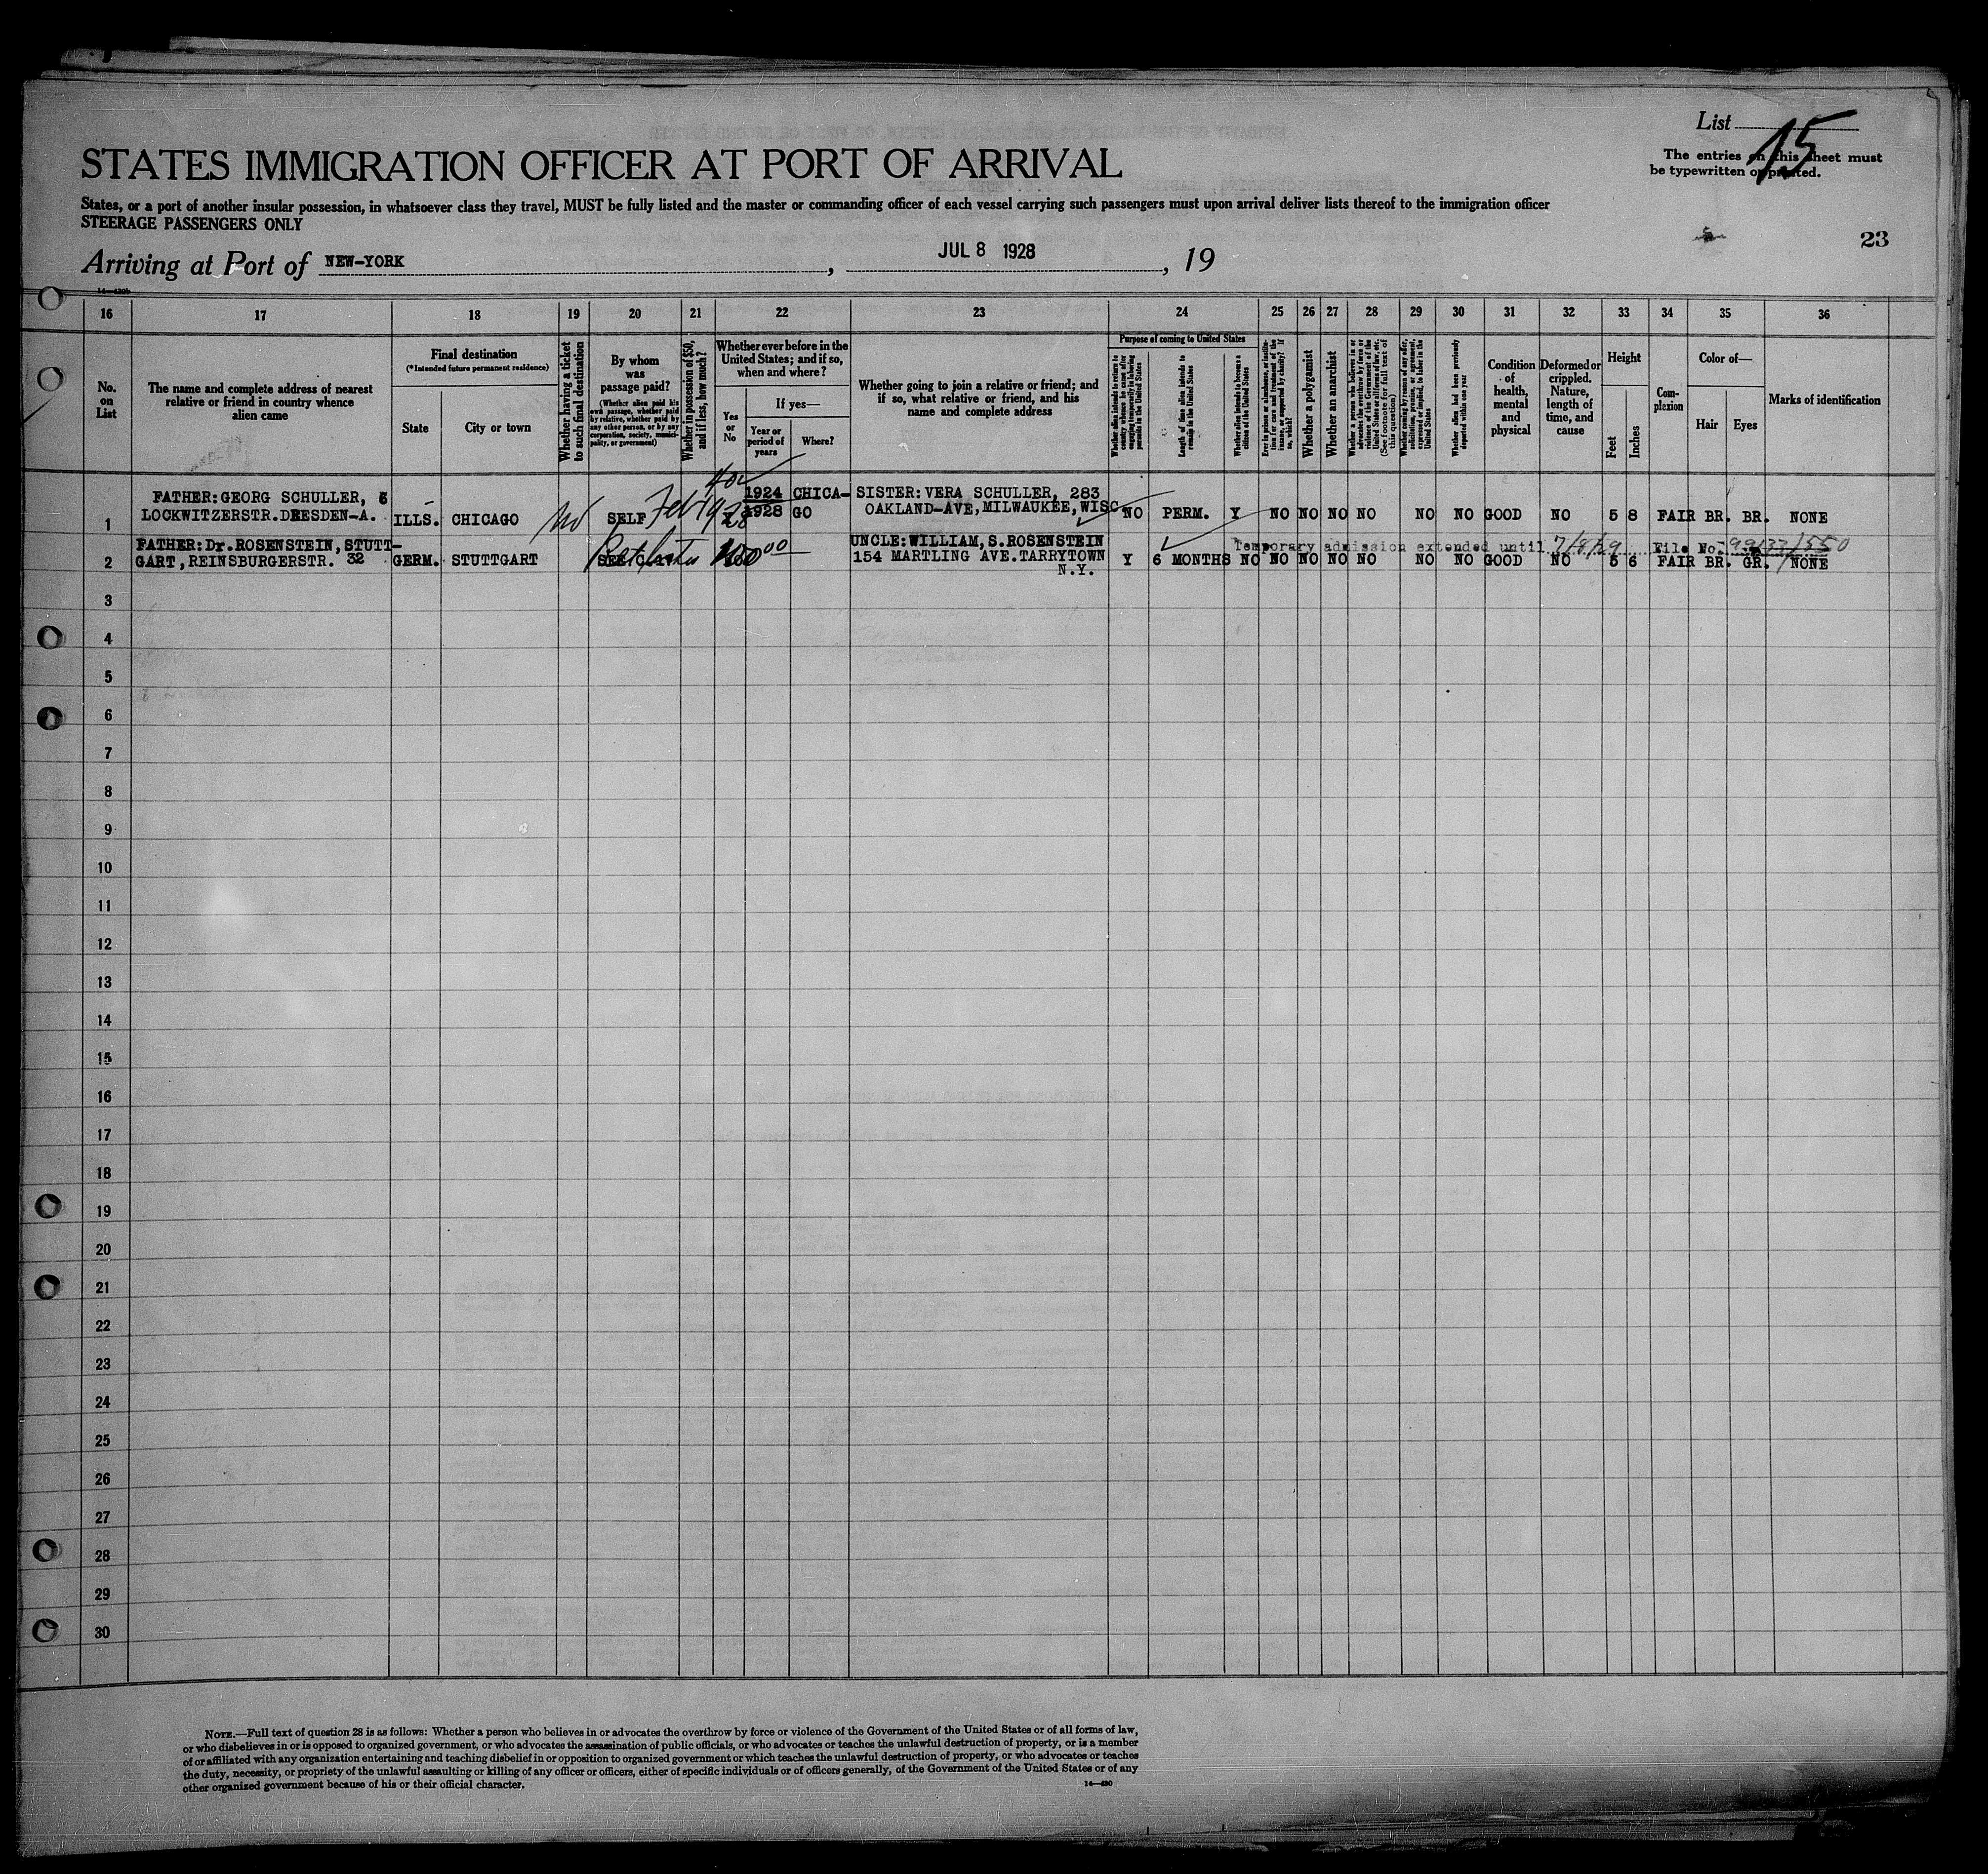 List 15
The entries on this sheet must
be typewritten or printed.
STATES IMMIGRATION OFFICER AT PORT OF ARRIVAL
States, or a port of another insular possession, in whatsoever class they travel, MUST be fully listed and the master or commanding officer of each vessel carrying such passengers must upon arrival deliver lists thereof to the immigration officer
STEERAGE PASSENGERS ONLY
23
Arriving at Port of NEW-YORK, JUL 8 1928, 19
16 17 18 19 20 21 22 23 24 25 26 27 28 29 30 31 32 33 34 35 36
No.
on
List
The name and complete address of nearest
relative or friend in country whence
alien came
Final destination
(*Intended future permanent residence)
State
City or town
Whether having a ticket
to such final destination
By whom
was
passage paid?
(Whether alien paid his
own passage, whether paid
by relative, whether paid by
any other person, or by any
corporation, society, munici-
pality, or government)
Whether in possession of $50,
and if less, how much?
Whether ever before in the
United States; and if so,
when and where?
Yes
or
No
If yes—
Year or
period of
years
Where?
Whether going to join a relative or friend; and
if so, what relative or friend, and his
name and complete address
Purpose of coming to United States
Whether alien intends to return to
country whence he came after
engaging temporarily in laboring
pursuits in the United States
Length of time alien intends to
remain in the United States
Whether alien intends to become a
citizen of the United States
Ever in prison or almshouse, or institu-
tion for care and treatment of the
insane, or supported by charity? If
so, which?
Whether a polygamist
Whether an anarchist
Whether a person who believes in or
advocates the overthrow by force or
violence of the Government of the
United States or all forms of law, etc.
(See footnote for full text of
this question)
Whether coming by reason of any offer,
solicitation, promise, or agreement,
expressed or implied, to labor in the
United States
Whether alien had been previously
deported within one year
Condition
of
health,
mental
and
physical
Deformed or
crippled.
Nature,
length of
time, and
cause
Height
Feet
Inches
Com-
plexion
Color of—
Hair
Eyes
Marks of identification
FATHER:GEORG SCHULLER, 5 1924 CHICA- SISTER:VERA SCHULLER, 283
1 LOCKWITZERSTR.DRESDEN-A. ILLS. CHICAGO No SELF Feb 1928 1928 GO OAKLAND-AVE,MILWAUKEE,WISC NO PERM. Y NO NO NO NO NO NO GOOD NO 5 8 FAIR BR. BR. NONE
FATHER:Dr.ROSENSTEIN,STUTT- UNCLE:WILLIAM,S.ROSENSTEIN
Temporary admission extended until 7/8/29 File No. 99133/550
2 GART,REINSBURGERSTR. 32 GERM. STUTTGART 154 MARTLING AVE.TARRYTOWN Y 6 MONTHS NO NO NO NO NO NO NO GOOD NO 5 6 FAIR BR. GR. NONE
N.Y.
3
4
5
6
7
8
9
10
11
12
13
14
15
16
17
18
19
20
21
22
23
24
25
26
27
28
29
30
NOTE.—Full text of question 28 is as follows: Whether a person who believes in or advocates the overthrow by force or violence of the Government of the United States or of all forms of law,
or who disbelieves in or is opposed to organized government, or who advocates the assassination of public officials, or who advocates or teaches the unlawful destruction of property, or is a member
of or affiliated with any organization entertaining and teaching disbelief in or opposition to organized government or which teaches the unlawful destruction of property, or who advocates or teaches
the duty, necessity, or propriety of the unlawful assaulting or killing of any officer or officers, either of specific individuals or of officers generally, of the Government of the United States or of any
other organized government because of his or their official character.
14—430